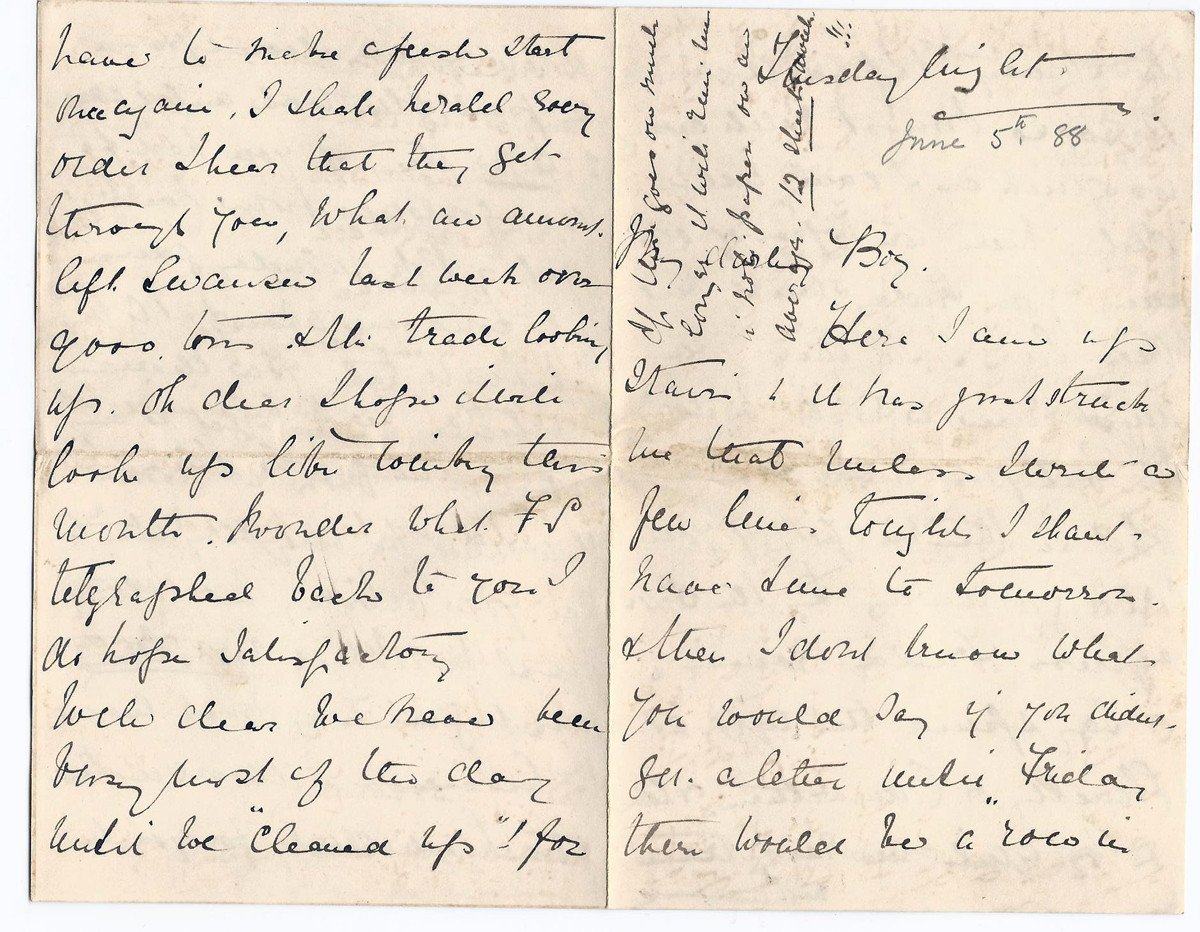 Tuesday night.
June 5th 88
My darling Boy.
Here I am up
Stairs & it has just struck
me that unless I write a
few lines tonight I shant
have time to tomorrow.
& then I dont know what
you would say if you didnt
get a letter until "Friday"
there would be a row in
If this goes on much
longer it will ruin me
in note paper on an
average. 12 sheets a week
!!!
have to make a fresh start
once again. I shall herald every
order I hear that they get
through you, What an amount
left Swansea last week over
9000 tons & the trade looking
up. Oh dear I hope it will
look up like winking this
month. I wonder what F S
telegraphed back to you I
do hope satisfactory
Well dear we have been
busy most of the day
until we "cleaned up"! for